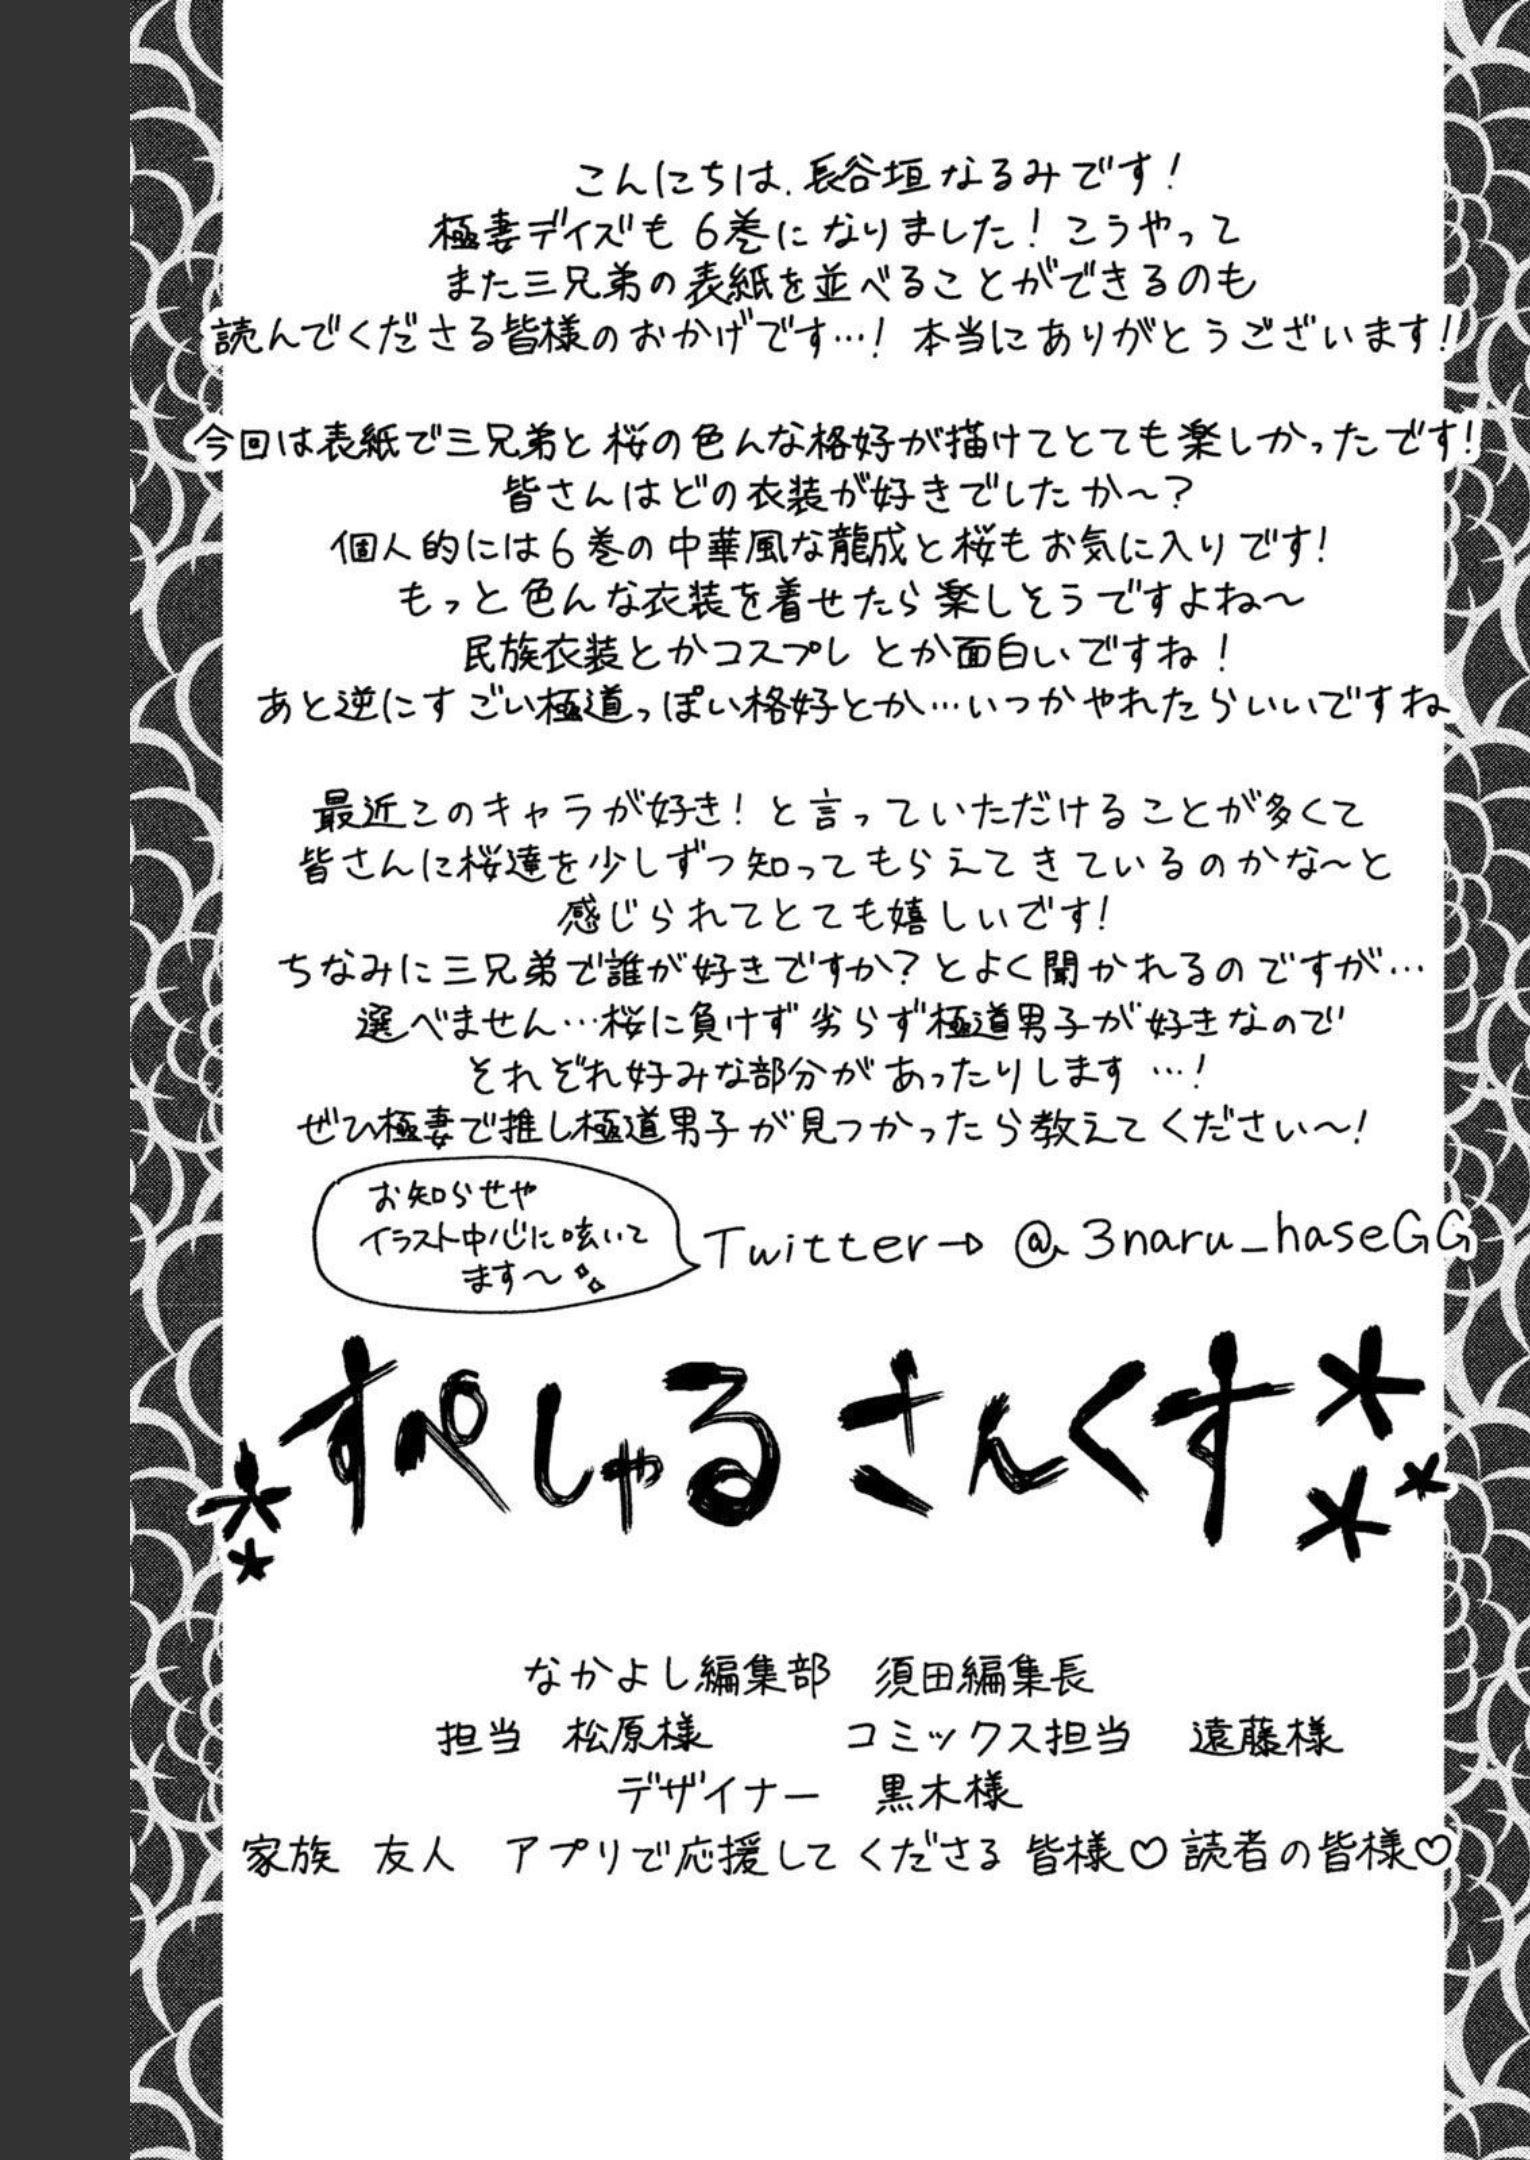 こんにちは、長谷垣なるみです!
極妻デイズも6巻になりました!こうやって
また三兄弟の表紙を並べることができるのも
読んでくださる皆様のおかげです…!本当にありがとうございます!
今回は表紙で三兄弟と桜の色んな格好が描けてとても楽しかったです!
皆さんはどの衣装が好きでしたか〜?
個人的には6巻の中華風な龍成と桜もお気に入りです!
もっと色んな衣装を着せたら楽しそうですよね〜
民族衣装とかコスプレとか面白いですね!
あと逆にすごい極道っぽい格好とか…いつかやれたらいいですね
最近このキャラが好き!と言っていただけることが多くて
皆さんに桜達を少しずつ知ってもらえてきているのかな〜と
感じられてとても嬉しいです!
ちなみに三兄弟で誰が好きですか?とよく聞かれるのですが…
選べません…桜に負けず劣らず極道男子が好きなので
それぞれ好みな部分があったりします…!
ぜひ極妻で推し極道男子が見つかったら教えてください〜!
お知らせや
イラスト中心に呟いて
ます〜
Twitter→ @3naru_haseGG
すぺしゃるさんくす
なかよし編集部 須田編集長
担当 松原様 コミックス担当 遠藤様
デザイナー 黒木様
家族 友人 アプリで応援してくださる皆様♡読者の皆様♡